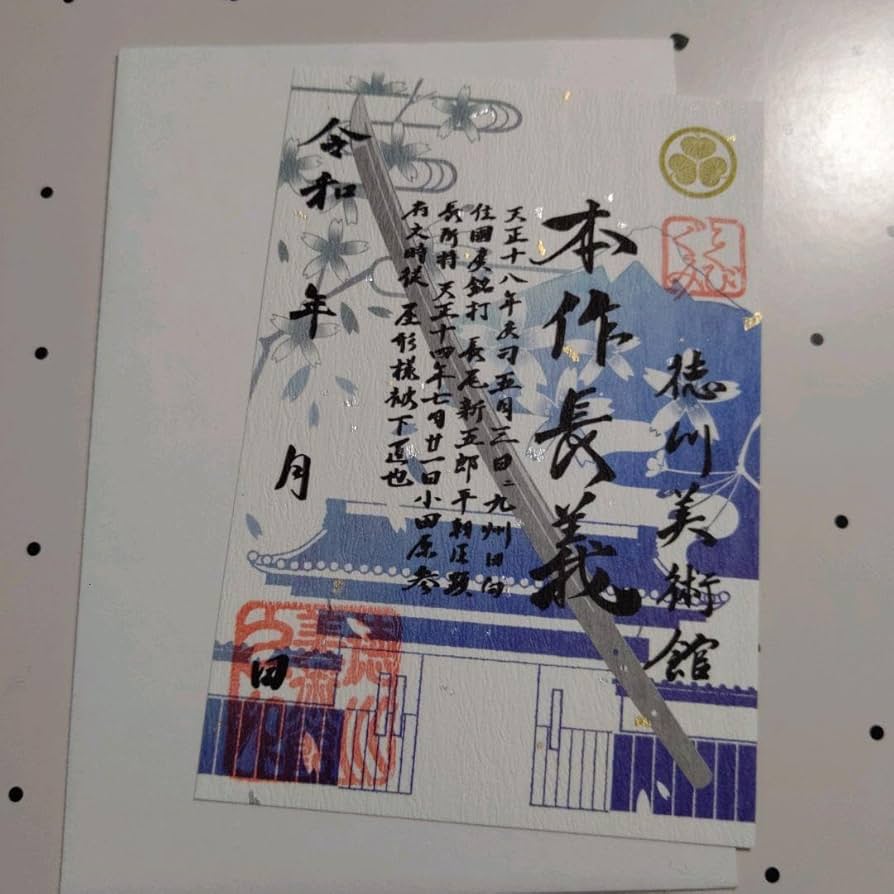 徳川美術館
本作長義
天正十八年庚刁五月三日ニ九州日向
住國廣銘打 長尾新五郎平朝臣顕
長所持 天正十四年七月廿一日小田原参
府之時従 屋形様被下置也
令和 年 月 日